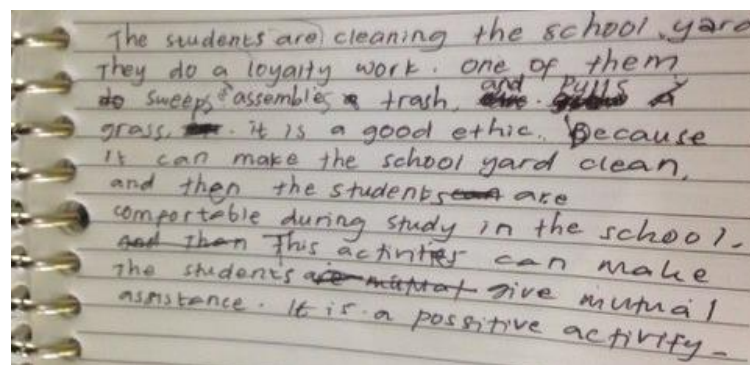 The students are cleaning the school yard
They do a loyalty work. one of them
do sweeps assembles trash, and pulls
grass, it is a good ethic. Because
it can make the school yard clean,
and then the students are
comportable during study in the school.
and then This activities can make
The students are mutual give mutual
assistance. It is a possitive activity.